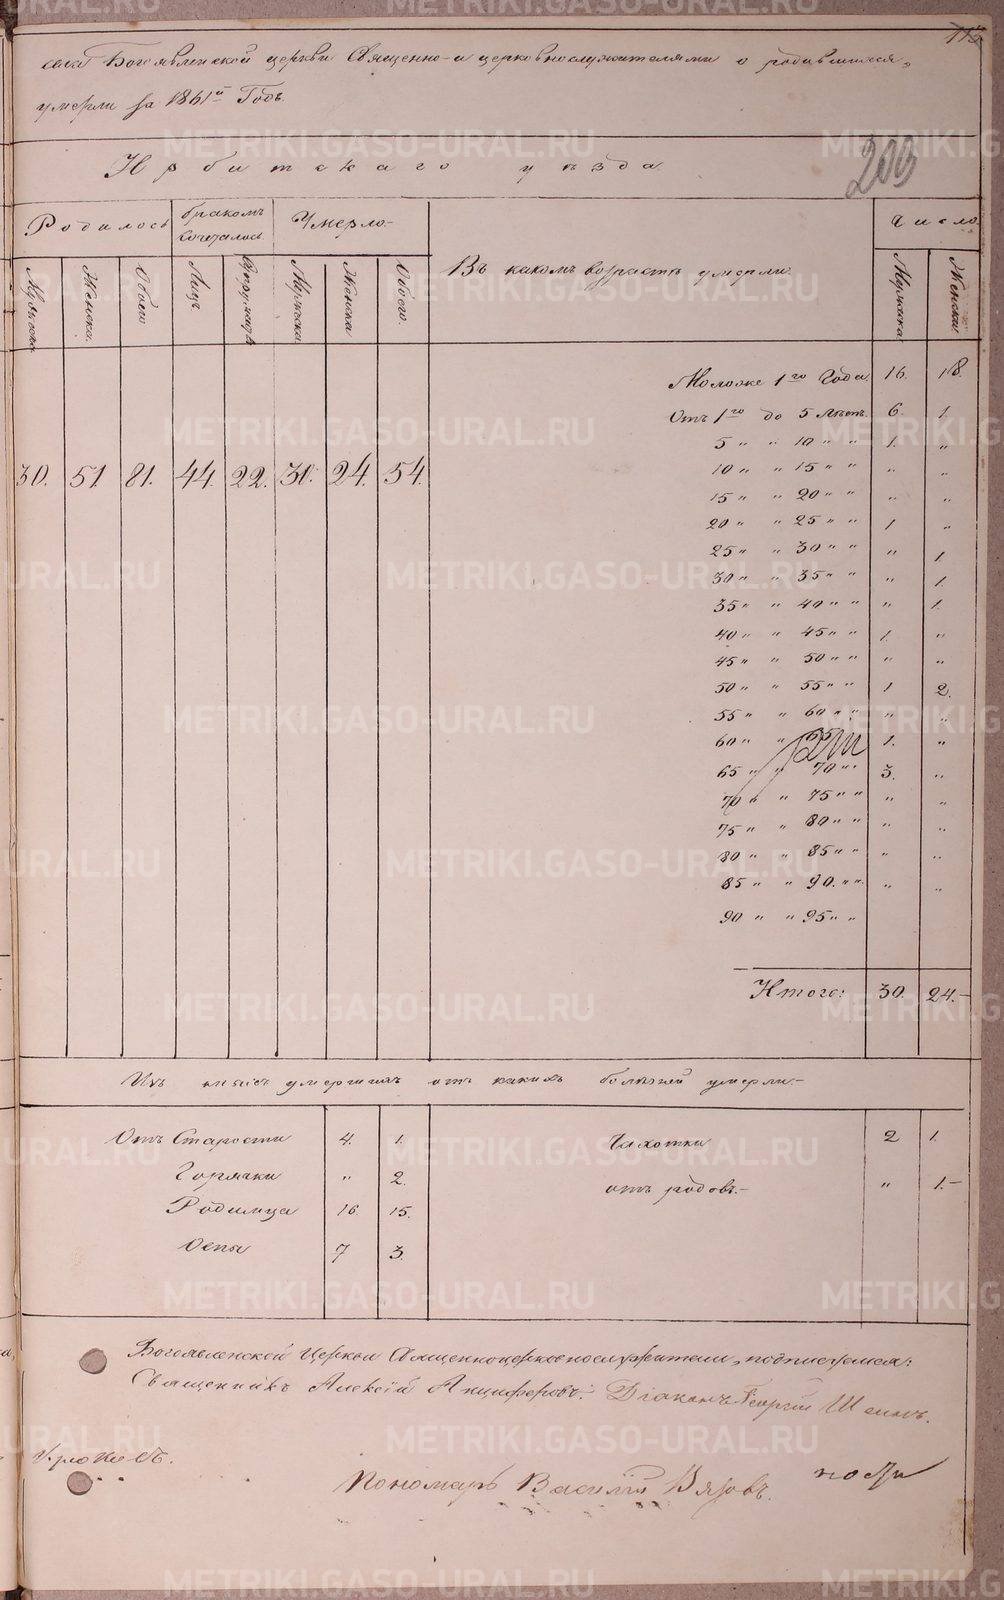 115
села Богоявленской церкви Священно-и церковнослужителями о родившихся,
умерли за 1861й Годъ.
Ирбитскаго уѣзда.
200
Родилось
бракомъ сочеталось
Умерло
Въ какомъ возрастѣ умерли.
Число
Мужеска Женска. Обоего Лицъ Мужеска Женска Обоего. Мужеска Женска
Моложе 1го Года 16. 18.
Отъ 1го до 5 лѣтъ. 6. 1.
5 " " 10 " " 1. "
30. 51. 81. 44. 22. 30. 24. 54.
10 " " 15 " " " "
15 " " 20 " " " "
20 " " 25 " " 1 "
25 " " 30 " " " 1.
30 " " 35 " " " 1.
35 " " 40 " " " 1.
40 " " 45 " " 1. "
45 " " 50 " " " "
50 " " 55 " " 1 2.
55 " " 60 " " " "
60 " " 65 1. "
65 " " 70 " " 3. "
70 " " 75 " " " "
75 " " 80 " " " "
80 " " 85 " " " "
85 " " 90. " " " "
90 " " 95 " "
Итого: 30. 24.-
Изъ умершихъ отъ какихъ болѣзней умерли.-
Отъ Старости 4. 1. Чахотки 2 1.
Горячки " 2. отъ родовъ.- " 1.-
Родимца 16. 15.
Оспы 7 3.
Богоявленской Церкви Священноцерковнослужители, подписуемся:
Священникъ Алексій Анциферовъ. Діаконъ Георгій
Пономарь Василій
METRIKI.GASO-URAL.RU